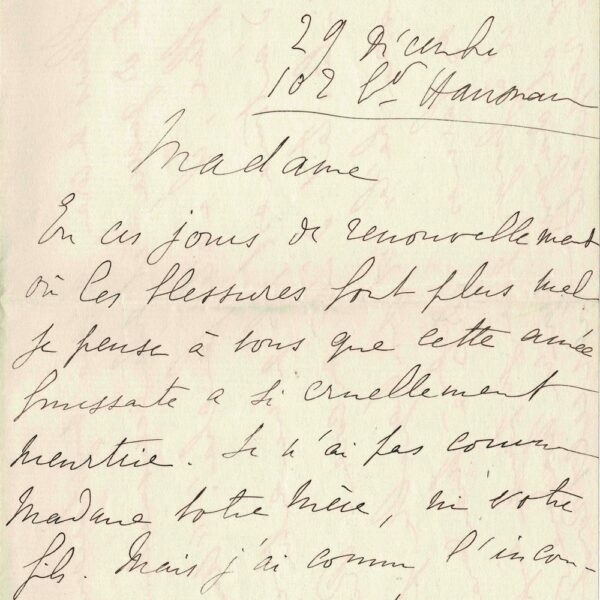 29 Décembre
102 Bd Haussmann
Madame
En ces jours de renouvellement
où les blessures font plus mal
je pense à vous que cette année
finissante a si cruellement
meurtrie. Je n'ai pas connu
Madame votre Mère, ni votre
fils. Mais j'ai connu l'incon-